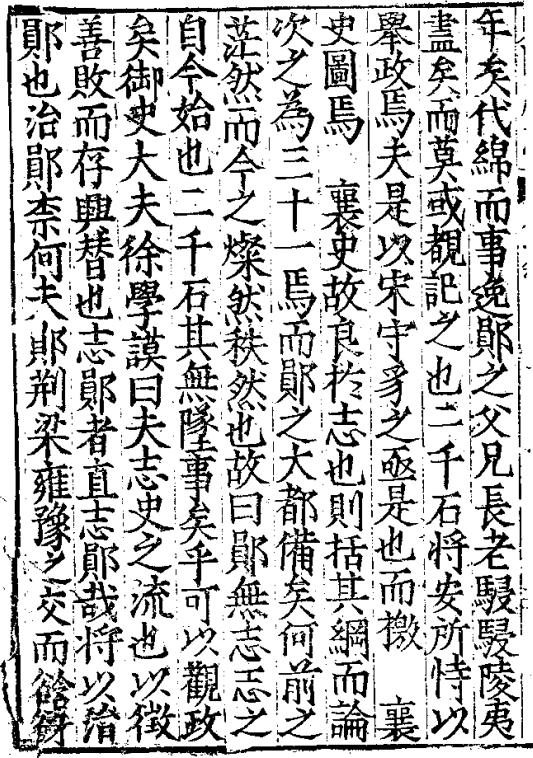 年矣代綿而事逸鄖之父兄長老駸駸陵夷
盡矣而莫或覩記之也二千石将安所恃以
舉政焉夫是以宋守豸之亟是也而檄　襄
史圖焉　襄史故良於志也則括其綱而論
次之為三十一焉而鄖之大都備矣何前之
茫然而今之燦然秩然也故曰鄖無志志之
自今始也二千石其無墜事矣乎可以觀政
矣御史大夫徐學謨曰夫志史之流也以徵
善敗而存興替也志鄖者直志鄖哉将以治
鄖也治鄖柰何夫鄖荆梁雍豫之交而谽谺